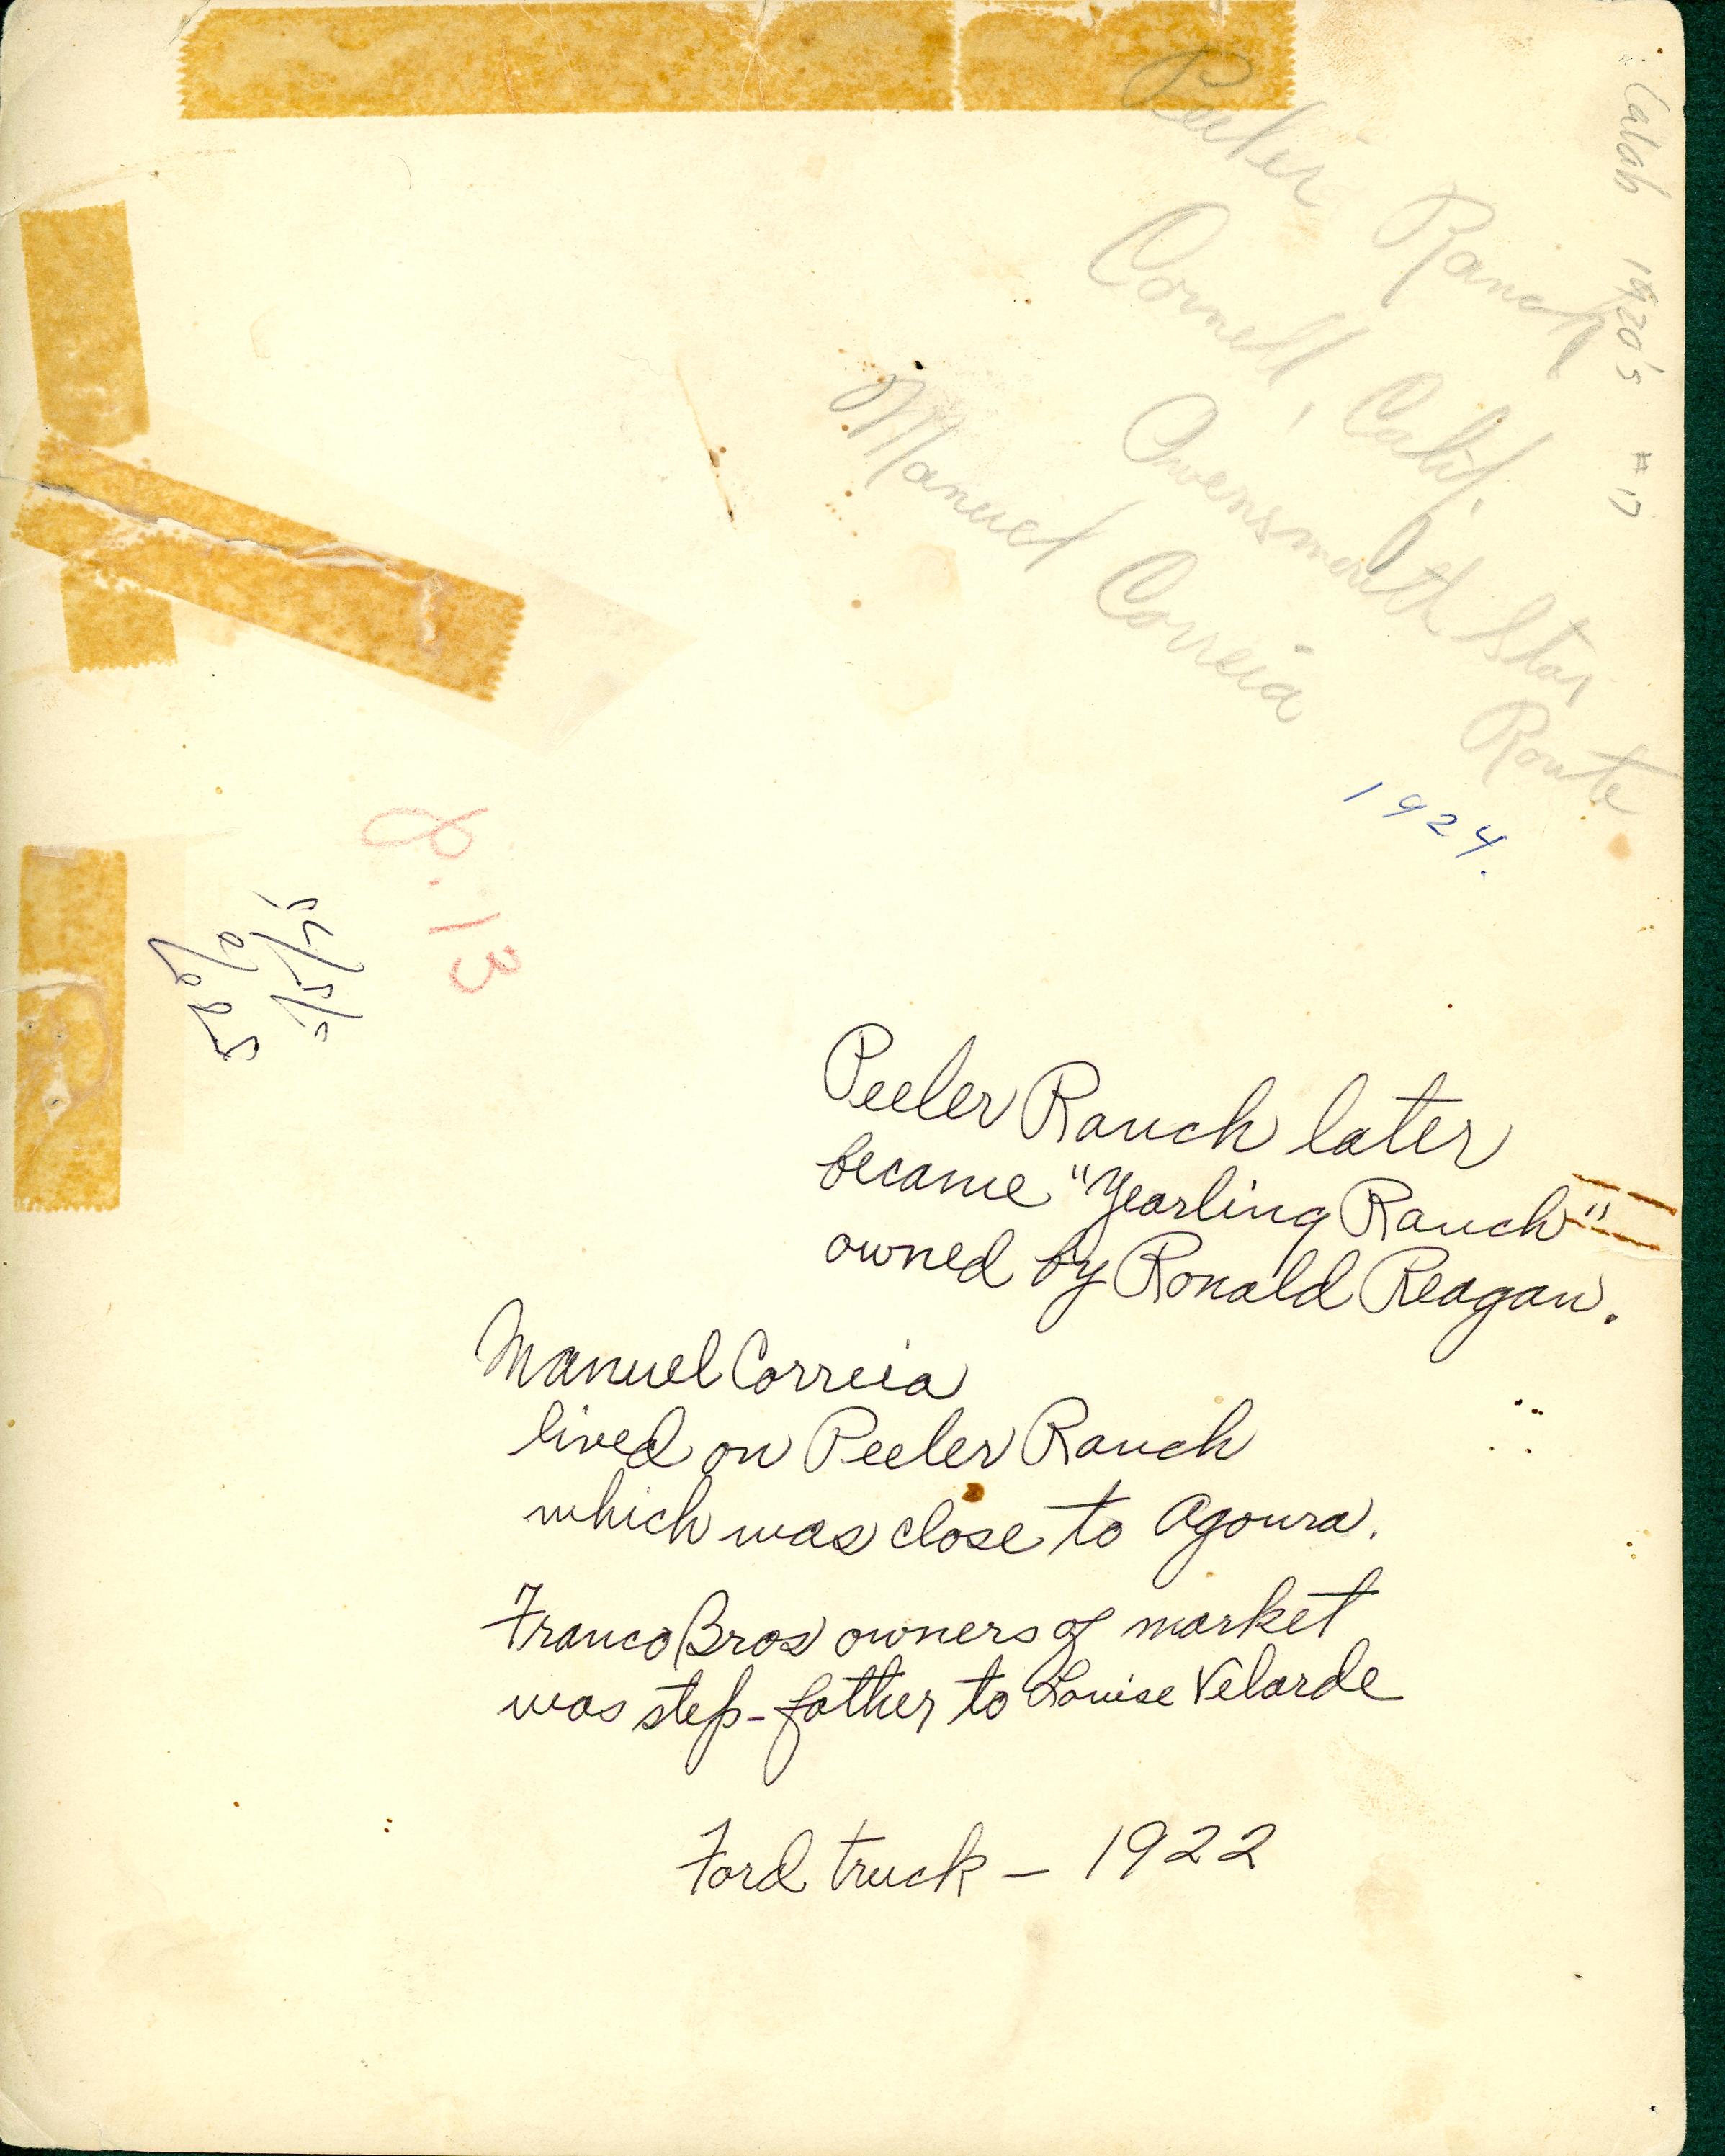 Calab 1920's #17
Peeler Ranch
Cornell, Calif.
Owensmouth Star
Route
Manuel Correia
1924.
8.13
58%
Peeler Ranch later
became "Yearling Ranch"
owned by Ronald Reagan.
Manuel Correia
lived on Peeler Ranch
which was close to Agoura.
Franco Bros owners of market
was step-father to Louise Velarde
Ford truck – 1922